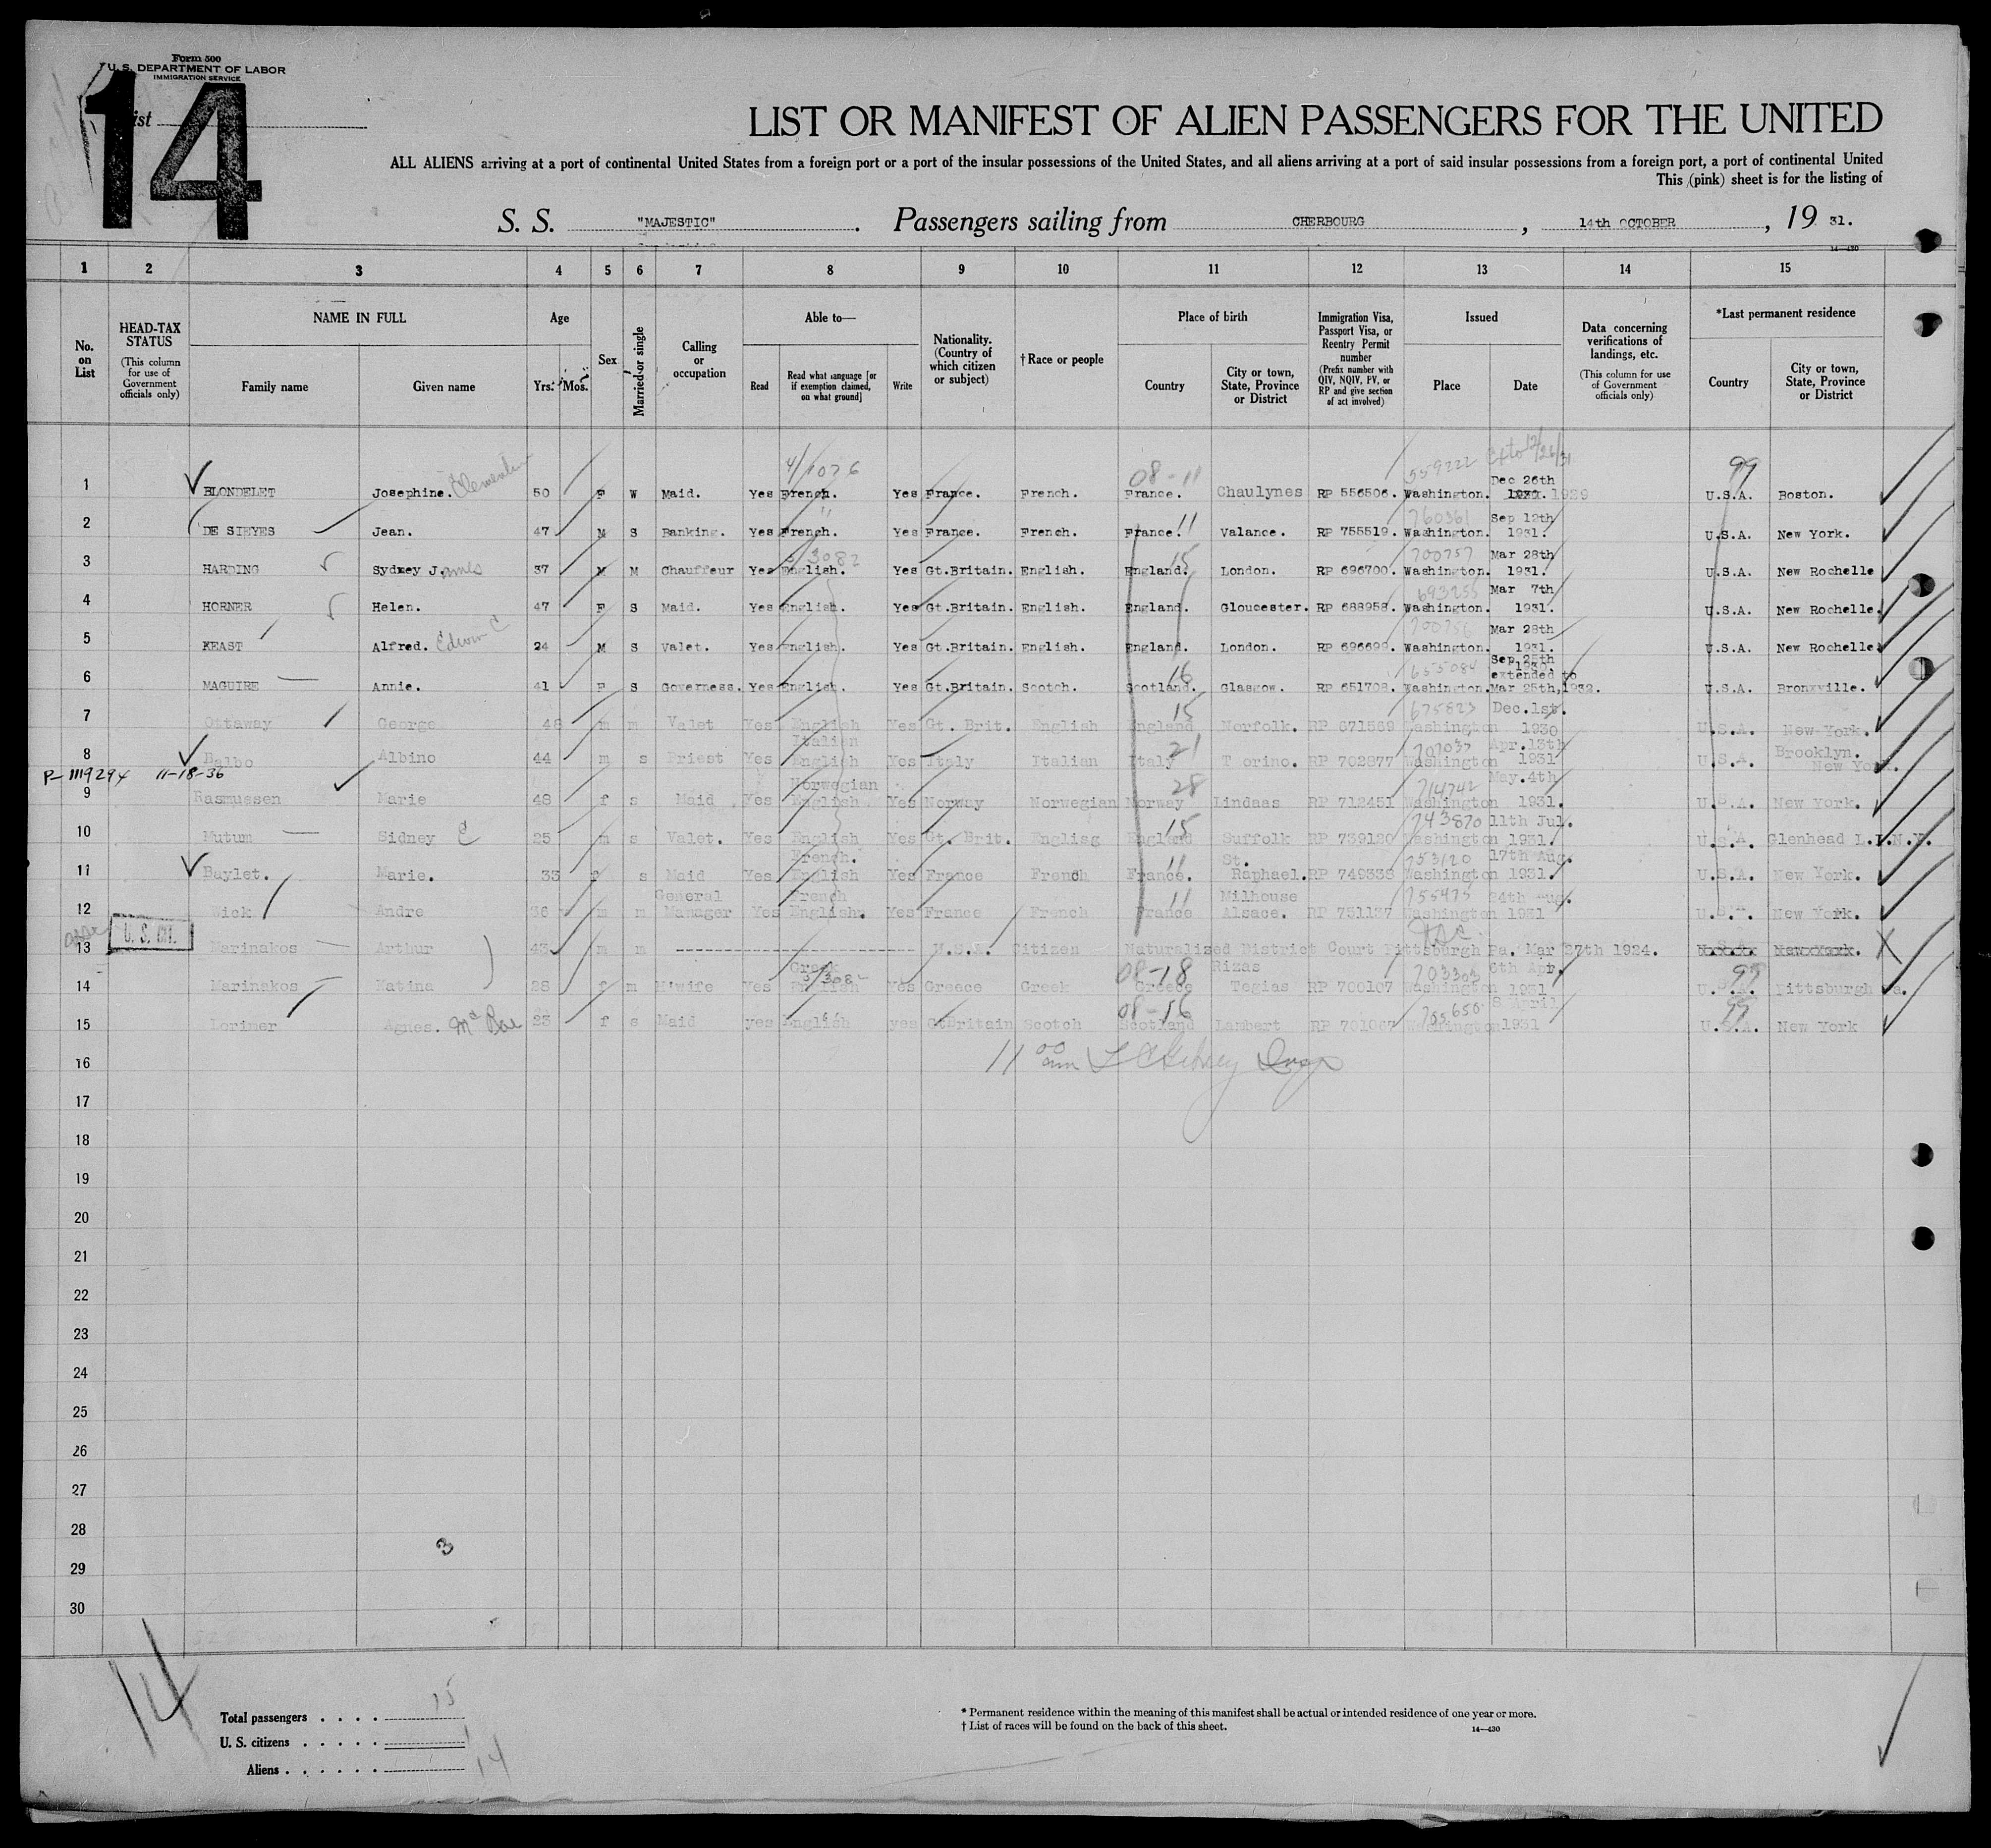 Form 500
U. S. DEPARTMENT OF LABOR
IMMIGRATION SERVICE
14
ist
LIST OR MANIFEST OF ALIEN PASSENGERS FOR THE UNITED
ALL ALIENS arriving at a port of continental United States from a foreign port or a port of the insular possessions of the United States, and all aliens arriving at a port of said insular possessions from a foreign port, a port of continental United
This (pink) sheet is for the listing of
S. S. "MAJESTIC". Passengers sailing from CHERBOURG, 14th OCTOBER, 19 31.
14—430
1 2 3 4 5 6 7 8 9 10 11 12 13 14 15
No. on List
HEAD-TAX STATUS (This column for use of Government officials only)
NAME IN FULL Family name Given name
Age Yrs. Mos.
Sex
Married or single
Calling or occupation
Able to— Read Read what language [or if exemption claimed, on what ground] Write
Nationality. (Country of which citizen or subject)
†Race or people
Place of birth Country City or town, State, Province or District
Immigration Visa, Passport Visa, or Reentry Permit number (Prefix number with QIV, NQIV, PV, or RP and give section of act involved)
Issued Place Date
Data concerning verifications of landings, etc. (This column for use of Government officials only)
*Last permanent residence Country City or town, State, Province or District
4/1076 08-11 559222 Ext to 12/26/31 99
1 BLONDELET Josephine. 50 F W Maid. Yes French. Yes France. French. France. Chaulynes RP 556506. Washington. Dec 26th 1929 U.S.A. Boston.
2 DE SIEYES Jean. 47 M S Banking. Yes French. " Yes France. French. France. 11 Valance. RP 755519. Washington. 760361 Sep 12th 1931. U.S.A. New York.
3 HARDING Sydney James 37 M M Chauffeur Yes English. Yes Gt.Britain. English. England. 15 London. RP 696700. Washington. 700757 Mar 28th 1931. U.S.A. New Rochelle
4 HORNER Helen. 47 F S Maid. Yes English. Yes Gt.Britain. English. England. Gloucester. RP 688958. Washington. 693255 Mar 7th 1931. U.S.A. New Rochelle.
5 KEAST Alfred. Edwin C 24 M S Valet. Yes English. Yes Gt.Britain. English. England. London. RP 696699. Washington. 700756 Mar 28th 1931. U.S.A. New Rochelle.
6 MAGUIRE Annie. 41 F S Governess. Yes English. Yes Gt.Britain. Scotch. Scotland. 16 Glasgow. RP 651708. Washington. 655084 Sep 25th 1930. extended to Mar 25th, 1932. U.S.A. Bronxville.
7 Ottaway George 48 m m Valet Yes English Yes Gt. Brit. English England 15 Norfolk. RP 671569 Washington 675823 Dec.1st. 1930 U.S.A. New York.
8 Balbo Albino 44 m s Priest Yes Italian English Yes Italy Italian Italy 21 T orino. RP 702877 Washington 707037 Apr.13th 1931 U.S.A. Brooklyn. New York.
P-1119294 11-18-36
9 Rasmussen Marie 48 f s Maid Yes Norwegian English Yes Norway Norwegian Norway 28 Lindaas RP 712451 Washington 714742 May.4th 1931. U.S.A. New York.
10 Mutum Sidney C 25 m s Valet. Yes English Yes Gt. Brit. Englisg England 15 Suffolk RP 739120 Washington 743870 11th Jul. 1931. U.S.A. Glenhead L.I.N.Y.
11 Baylet. Marie. 33 f s Maid Yes French. English Yes France French France. 11 St. Raphael. RP 749335 Washington 753120 17th Aug. 1931. U.S.A. New York.
12 Wick Andre 36 m m General Manager Yes French English. Yes France French France 11 Milhouse Alsace. RP 751137 Washington 755475 24th Aug. 1931 U.S.A. New York.
U. S. CIT.
13 Marinakos Arthur 43 m m U.S.A. Citizen Naturalized District Court Pittsburgh Pa. Mar 27th 1924. U.S.A. New York. X
14 Marinakos Matina 28 f m H'wife Yes Greek English Yes Greece Greek Greece 08-18 Rizas Tegias RP 700107 Washington 703303 6th Apr. 1931 U.S.A. 99 Pittsburgh Pa.
15 Lorimer Agnes. Mc Rae 23 f s Maid yes English yes GtBritain Scotch Scotland 08-16 Lambert RP 701067 Washington 8 April 1931 U.S.A. 99 New York
16 11 00 am
17
18
19
20
21
22
23
24
25
26
27
28
3
29
30
14
Total passengers . . . . 15
U. S. citizens . . . . . 1
Aliens . . . . . . 14
* Permanent residence within the meaning of this manifest shall be actual or intended residence of one year or more.
† List of races will be found on the back of this sheet.
14—430